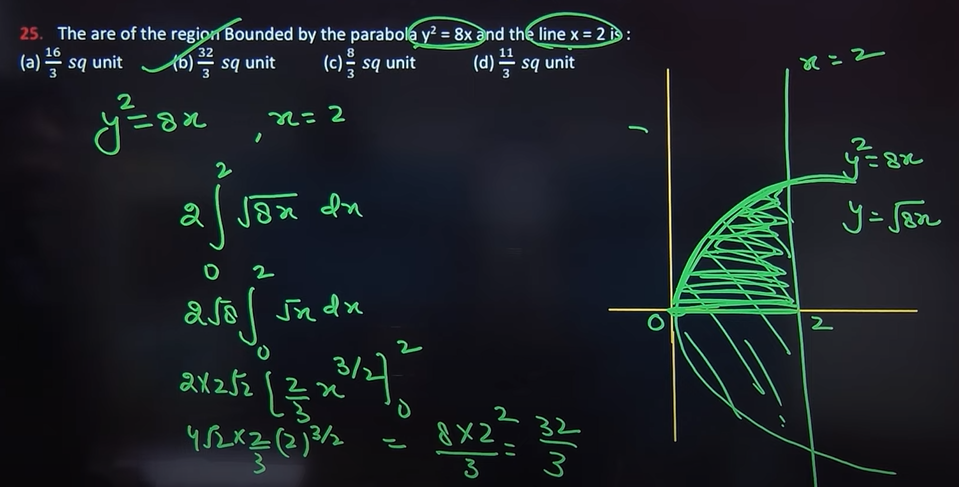 25. The are of the region Bounded by the parabola y² = 8x and the line x = 2 is :
(a) 16/3 sq unit (b) 32/3 sq unit (c) 8/3 sq unit (d) 11/3 sq unit
y² = 8x , x = 2
2 ∫₀² √8x dx
2√8 ∫₀² √x dx
2×2√2 [2/3 x^3/2]₀²
4√2 × 2/3 (2)^3/2 = 8×2²/3 = 32/3
x = 2
y² = 8x
y = √8x
0 2